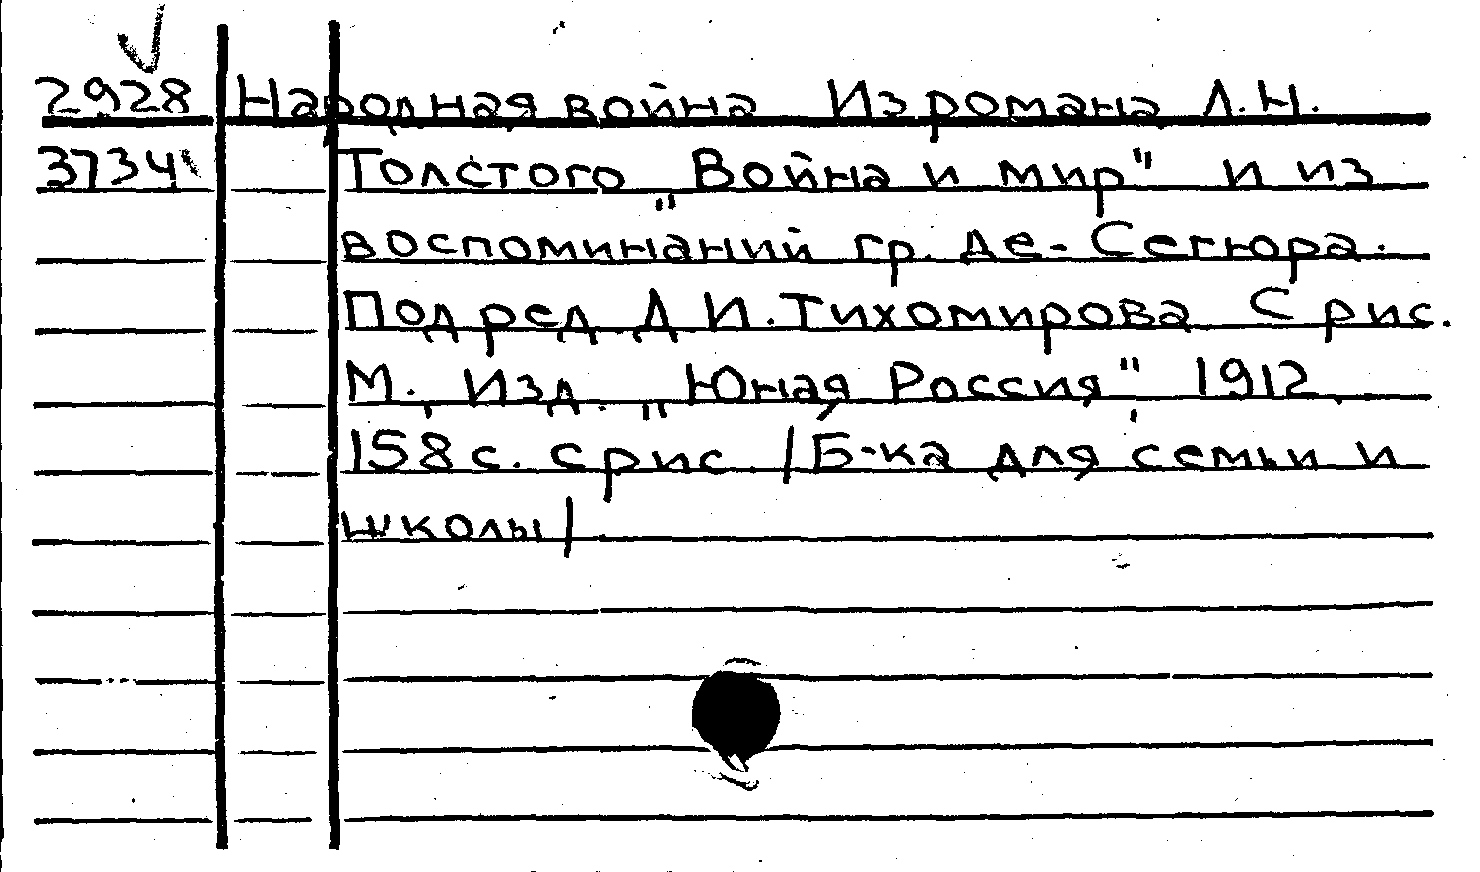 2928 Народная война Из романа Л.Н.
3734 Толстого „Война и мир" и из
воспоминаний гр. де-Сегюра.
Под ред. Д И.Тихомирова С рис.
М., Изд. „Юная Россия" 1912,
158 с. с рис. /Б-ка для семьи и
школы/